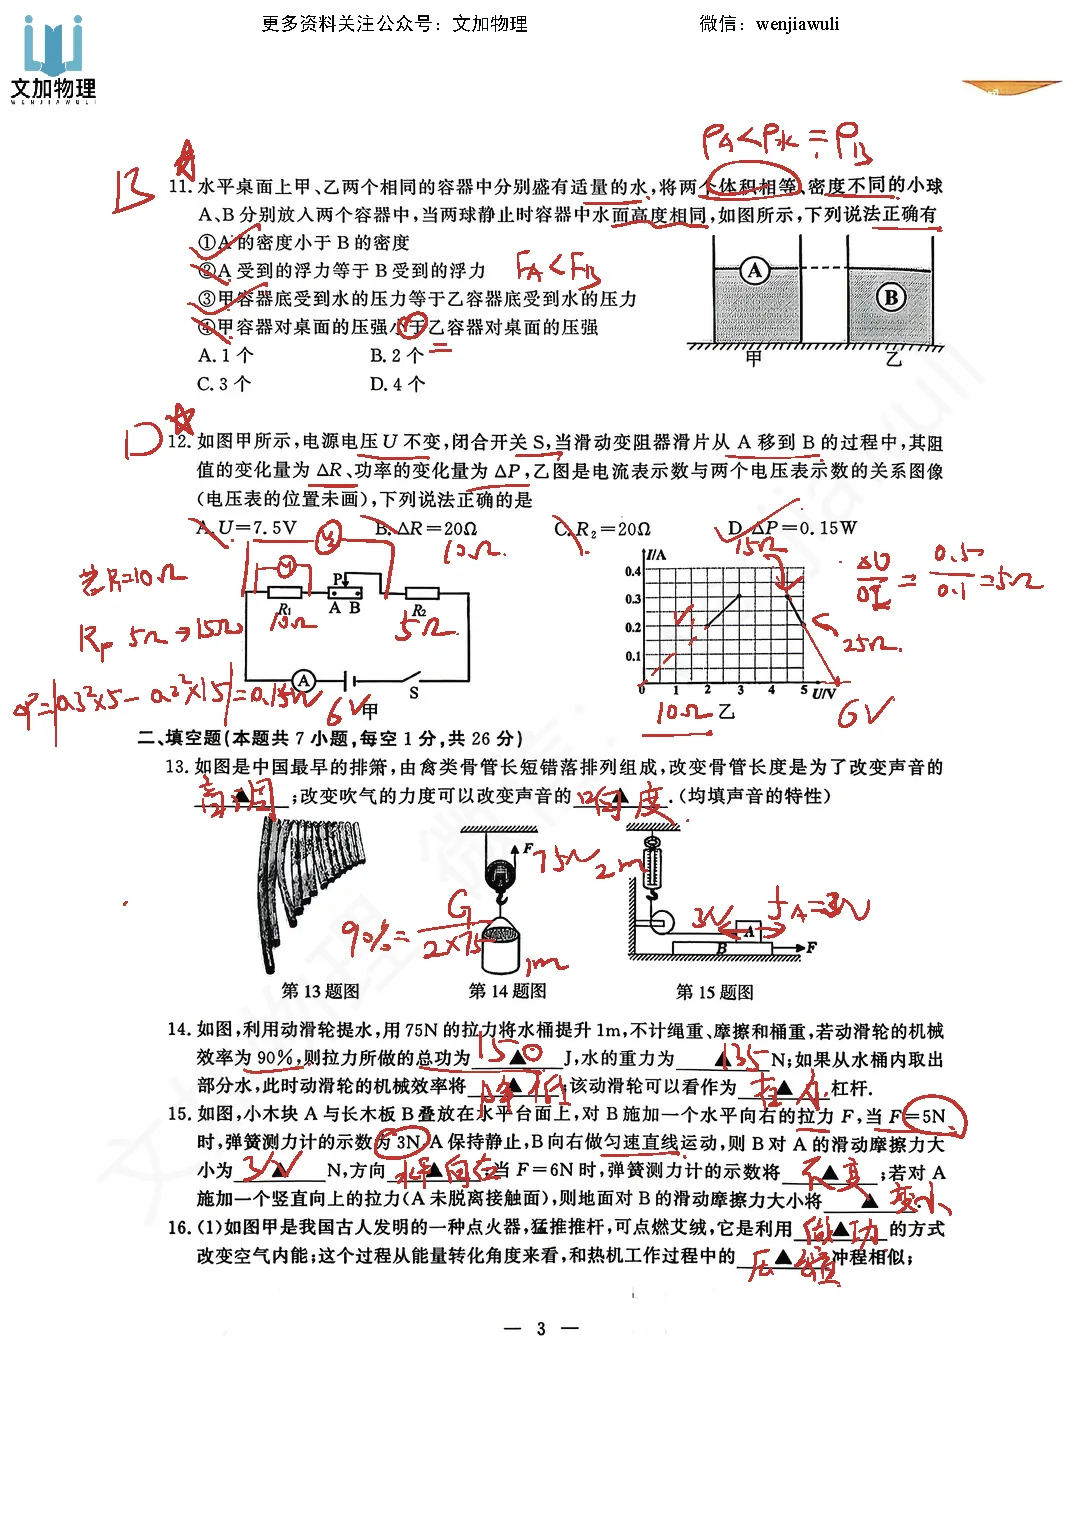 更多资料关注公众号：文加物理
微信：wenjiawuli
文加物理
WENJIAWULI
ρA<ρ水=ρB
B
11. 水平桌面上甲、乙两个相同的容器中分别盛有适量的水，将两个体积相等、密度不同的小球
A、B分别放入两个容器中，当两球静止时容器中水面高度相同，如图所示，下列说法正确有
①A 的密度小于 B 的密度
②A 受到的浮力等于 B 受到的浮力
FA<FB
③甲容器底受到水的压力等于乙容器底受到水的压力
④甲容器对桌面的压强小于乙容器对桌面的压强
=
A. 1 个
B. 2 个
C. 3 个
D. 4 个
A
B
甲
乙
D
12. 如图甲所示，电源电压 U 不变，闭合开关 S，当滑动变阻器滑片从 A 移到 B 的过程中，其阻
值的变化量为 ΔR、功率的变化量为 ΔP，乙图是电流表示数与两个电压表示数的关系图像
（电压表的位置未画），下列说法正确的是
A. U=7.5V
B. ΔR=20Ω
C. R2=20Ω
D. ΔP=0.15W
10Ω.
15Ω
ΔU/ΔI = 0.5/0.1 =5Ω
R1=10Ω
Rp 5Ω→15Ω
ΔP=|0.3²×5-0.2²×15|=0.15W
P
R1
A B
R2
10Ω
5Ω.
A
S
6V
甲
I/A
0.4
0.3
0.2
0.1
0 1 2 3 4 5 U/V
25Ω.
10Ω
乙
6V
二、填空题（本题共 7 小题，每空 1 分，共 26 分）
13. 如图是中国最早的排箫，由禽类骨管长短错落排列组成，改变骨管长度是为了改变声音的
音调▲；改变吹气的力度可以改变声音的响度▲．（均填声音的特性）
F
75N 2m
90%=G/2×75
1m
3N
fA=3N
A
B
F
第 13 题图
第 14 题图
第 15 题图
14. 如图，利用动滑轮提水，用 75N 的拉力将水桶提升 1m，不计绳重、摩擦和桶重，若动滑轮的机械
效率为 90%，则拉力所做的总功为 150▲ J，水的重力为 ▲135 N；如果从水桶内取出
部分水，此时动滑轮的机械效率将 降▲低；该动滑轮可以看作为 省▲力 杠杆．
15. 如图，小木块 A 与长木板 B 叠放在水平台面上，对 B 施加一个水平向右的拉力 F，当 F=5N
时，弹簧测力计的示数为 3N，A 保持静止，B 向右做匀速直线运动，则 B 对 A 的滑动摩擦力大
小为 3▲ N，方向 水平向右▲；当 F=6N 时，弹簧测力计的示数将 不▲变；若对 A
施加一个竖直向上的拉力（A 未脱离接触面），则地面对 B 的滑动摩擦力大小将 ▲变小．
16. (1)如图甲是我国古人发明的一种点火器，猛推推杆，可点燃艾绒，它是利用 做▲功 的方式
改变空气内能；这个过程从能量转化角度来看，和热机工作过程中的 压▲缩 冲程相似；
— 3 —